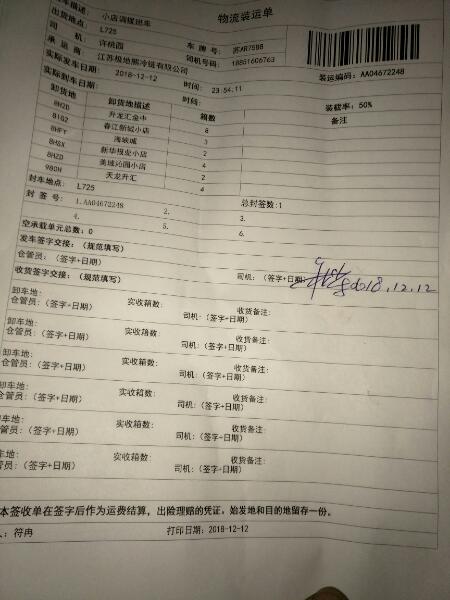 物流装运单
车描述: 小店调拨班车
出货地点: L725
司 机: 许桃园 车 牌 号: 苏AR7588
承 运 商 江苏极地熊冷链有限公司 司机号码: 18851606763
实际发车日期: 2018-12-12 时间: 23:54:11 装运编码: AA04672248
实际到车日期: 时间:
卸货地 卸货地描述 箱数 装载率: 50%
备注
8HZD 升龙汇金中 8
8102 春江新城小店 3
8HFT 海峡城 2
8HSX 新华报业小店 4
8HZD 美域沁园小店 2
980H 天龙升汇 4
封车地点: L725 总封签数:1
封 签 号: 1.AA04672248 2. 3.
4. 5. 6.
空承载单元总数: 0
发车签字交接: (规范填写)
仓管员: (签字+日期) 司机: (签字+日期) 2018.12.12
收货签字交接: (规范填写)
卸车地: 实收箱数: 收货备注:
仓管员: (签字+日期) 司机: (签字+日期)
卸车地: 实收箱数: 收货备注:
仓管员: (签字+日期) 司机: (签字+日期)
卸车地: 实收箱数: 收货备注:
仓管员: (签字+日期) 司机: (签字+日期)
卸车地: 实收箱数: 收货备注:
仓管员: (签字+日期) 司机: (签字+日期)
卸车地: 实收箱数: 收货备注:
管员: (签字+日期) 司机: (签字+日期)
车地: 实收箱数: 收货备注:
管员: (签字+日期) 司机: (签字+日期)
本签收单在签字后作为运费结算，出险理赔的凭证，始发地和目的地留存一份。
人: 符冉 打印日期: 2018-12-12